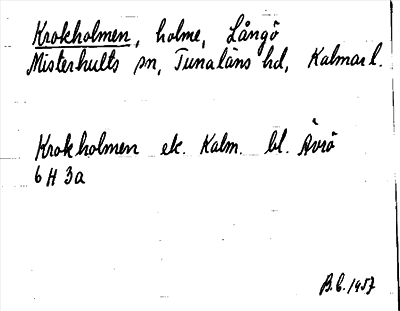 Krokholmen, holme, Långö
Misterhults sn, Tunaläns hd, Kalmar l.
Krokholmen ek. Kalm. bl. Ävrö
6 H 3a
B.C. 1957